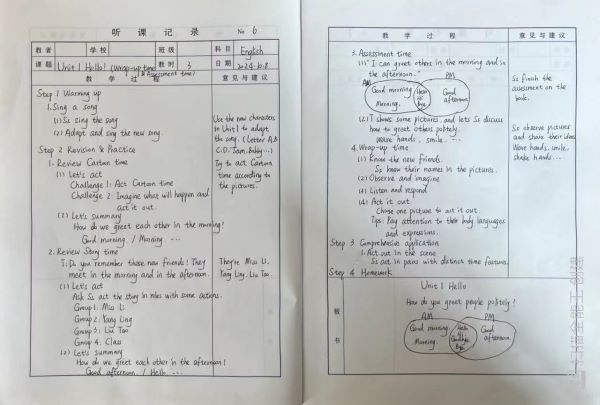 听课记录 No 6
教者 学校 班级 科目 English
课题 Unit 1 Hello! (Wrap-up time & Assessment time) 课时 3 日期 2024.10.8
教学过程 意见与建议
Step 1 Warming up
1. Sing a song
(1) Ss sing the song
(2) Adapt and sing the new song.
Use the new characters
in Unit 1 to adapt
the song. (Letter A,B
C,D. Sam, Bobby...)
Step 2 Revision & Practice
1. Review Cartoon time
(1) Let's act
Challenge 1: Act Cartoon time
Challenge 2: Imagine what will happen and
act it out.
Try to act Cartoon
time according to
the pictures.
(2) Let's summary
How do we greet each other in the morning?
Good morning. / Morning. ...
2. Review Story time
T: Do you remember these new friends? They
meet in the morning and in the afternoon.
They're Miss Li,
Yang Ling, Liu Tao.
(1) Let's act
Ask Ss act the story in roles with some actions.
Group 1: Miss Li
Group 2: Yang Ling
Group 3: Liu Tao
Group 4: Class
(2) Let's summary
How do we greet each other in the afternoon?
Good afternoon. / Hello ...
教学过程 意见与建议
3. Assessment time
(1) "I can greet others in the morning and in
the afternoon."
AM PM
Good morning.
Morning.
Hello
Hi
Bye
Good
afternoon.
Ss finish the
assessment on the
book.
(2) T shows some pictures, and lets Ss discuss
how to greet others politely.
Wave hands, smile. ...
Ss observe pictures
and share their ideas.
Wave hands, smile,
shake hands...
4. Wrap-up time
(1) Know the new friends.
Ss know their names in the pictures.
(2) Observe and imagine
(3) Listen and respond
(4) Act it out
Chose one picture to act it out.
Tips: Pay attention to their body languages
and expressions.
Step 3 Comprehensive application
1. Act out in the scene
Ss act in pairs with distinct time features.
Step 4 Homework
板书
Unit 1 Hello
How do you greet people politely?
AM PM
Good morning.
Morning.
Hello
Hi
Goodbye
Bye
Good
afternoon.
扫描全能王 创建